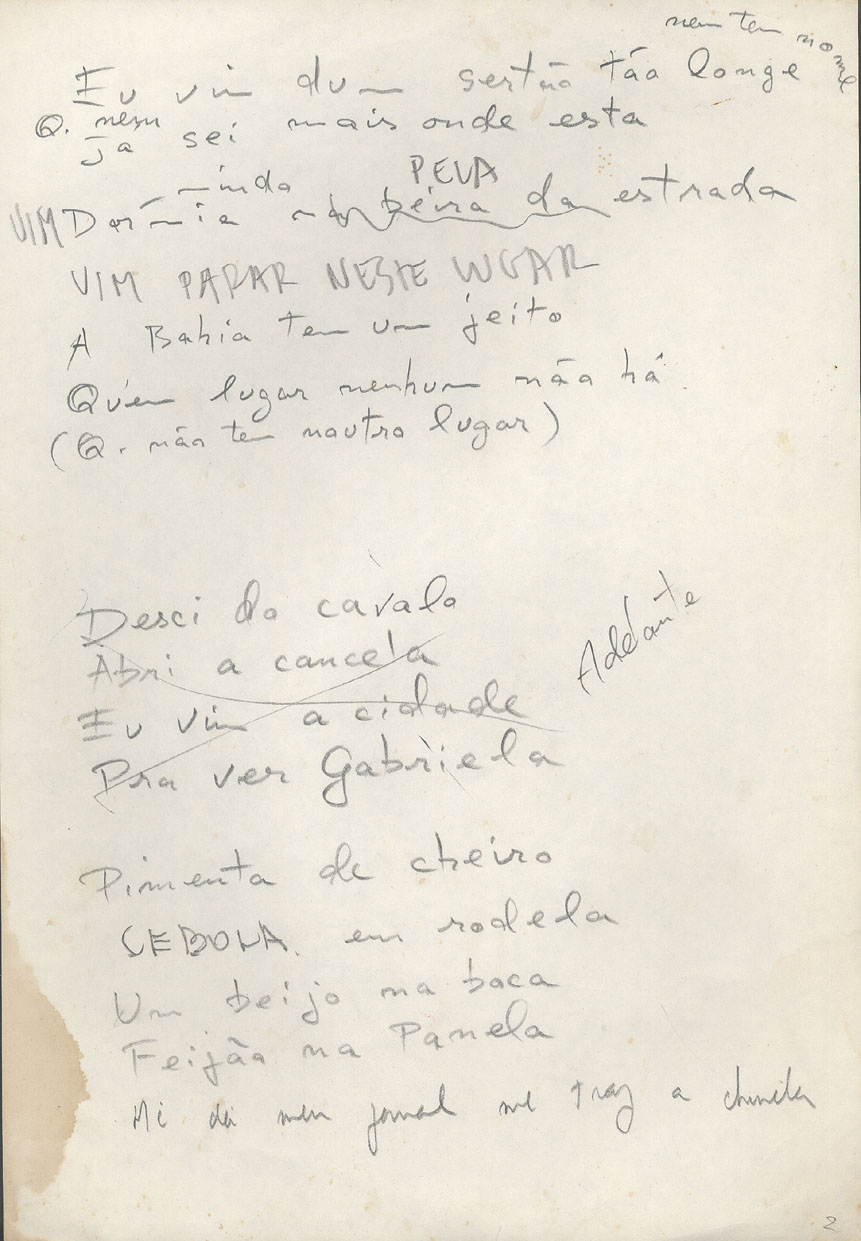 nem tem nome
Eu vim dum sertão tão longe
Q. nem
ja sei mais onde esta
indo PELA
VIM Dormia beira da estrada
VIM PARAR NESTE LUGAR
A Bahia tem um jeito
Quem lugar nenhum não há.
(Q. não tem noutro lugar)
Desci do cavalo
Adeante
Abri a cancela
Eu vim a cidade
Pra ver Gabriela
Pimenta de cheiro
CEBOLA. em rodela
Um beijo na boca
Feijão na Panela
Mi dá meu jornal me traz a chinela
2